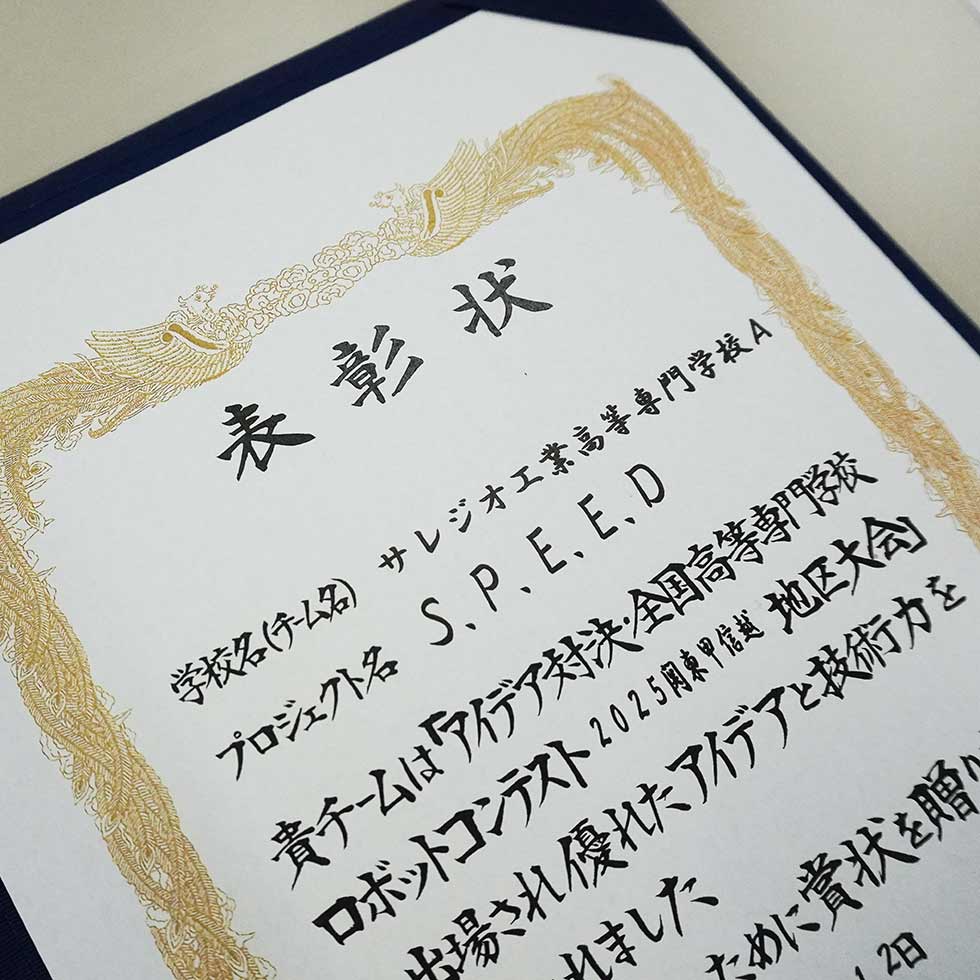 表彰状
学校名(チーム名) サレジオ工業高等専門学校A
プロジェクト名 S.P.E.E.D
貴チームは「アイデア対決・全国高等専門学校
ロボットコンテスト2025関東甲信越 地区大会」
出場され優れたアイデアと技術力を
れました
ために賞状を贈り
2日